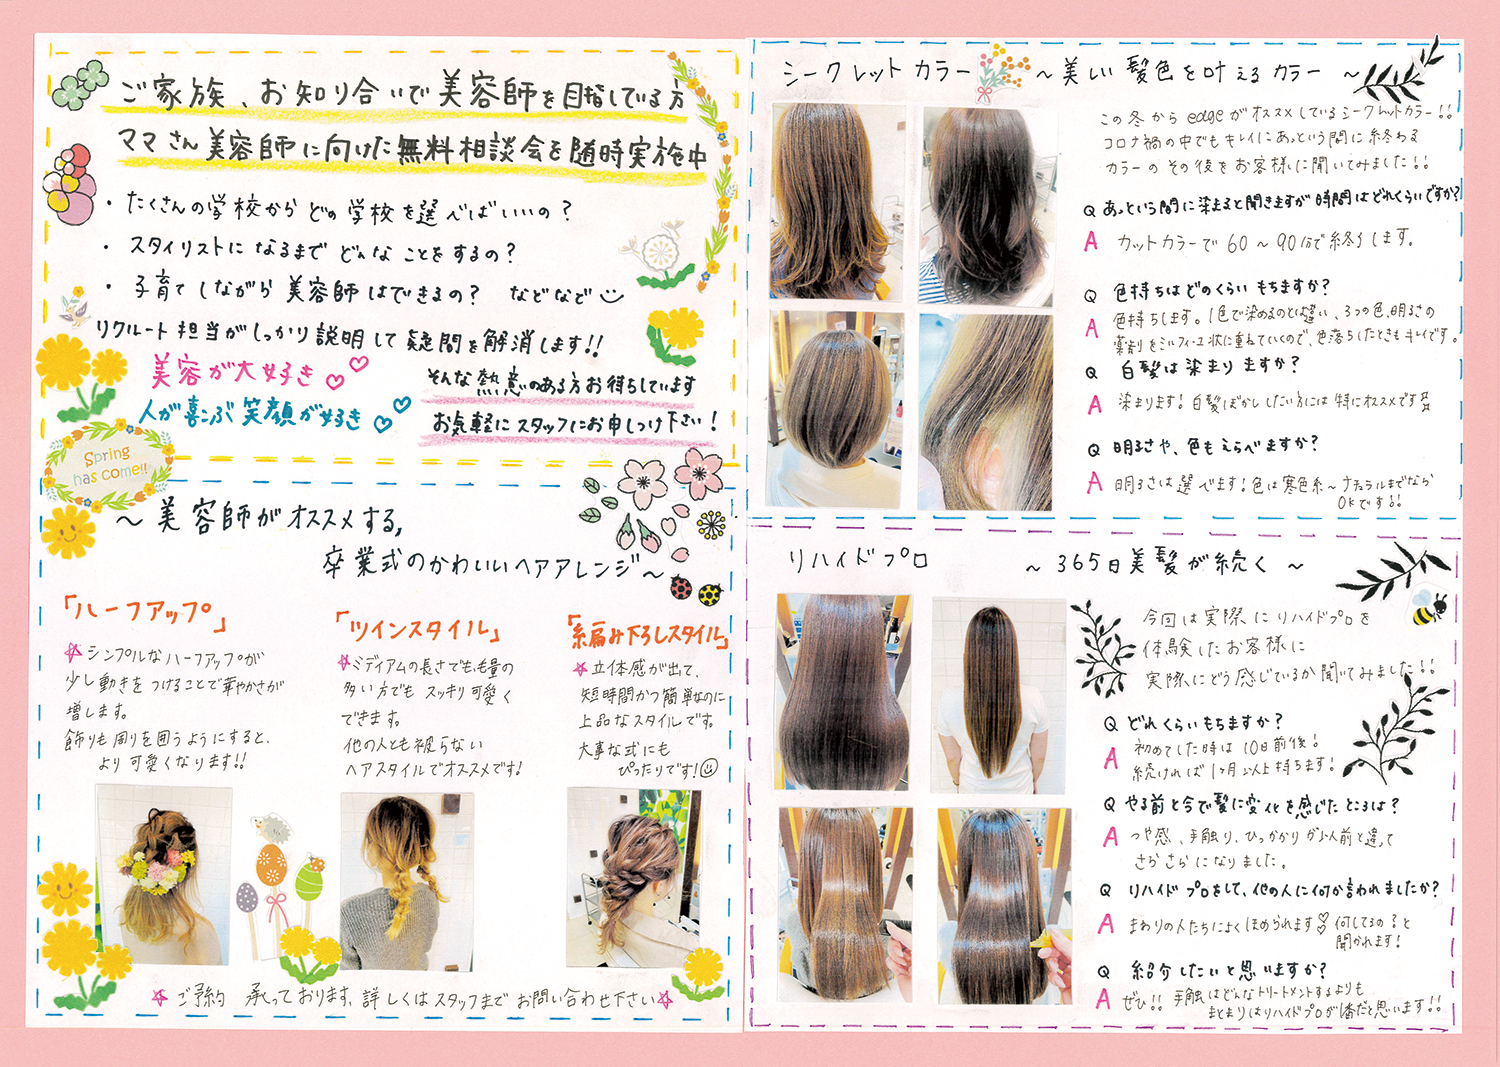 ご家族、お知り合いで美容師を目指している方
ママさん美容師に向けた無料相談会を随時実施中
・たくさんの学校からどの学校を選べばいいの？
・スタイリストになるまでどんなことをするの？
・子育てしながら美容師はできるの？ などなど
リクルート担当がしっかり説明して疑問を解消します!!
美容が大好き♡♡
人が喜ぶ笑顔が好き♡♡
そんな熱意のある方お待ちしています
お気軽にスタッフにお申しつけ下さい！
Spring
has come!!
～美容師がオススメする,
卒業式のかわいいヘアアレンジ～
「ハーフアップ」
☆シンプルなハーフアップが
少し動きをつけることで華やかさが
増します。
飾りも周りを囲うようにすると、
より可愛くなります!!
「ツインスタイル」
☆ミディアムの長さでも、毛量の
多い方でもスッキリ可愛く
できます。
他の人とも被らない
ヘアスタイルでオススメです!
「糸編み下ろしスタイル」
☆立体感が出て、
短時間かつ簡単なのに
上品なスタイルです。
大事な式にも
ぴったりです!
☆ご予約 承っております。詳しくはスタッフまでお問い合わせ下さい☆
シークレットカラー ～美しい髪色を叶えるカラー～
この冬からedgeがオススメしているシークレットカラー!!
コロナ禍の中でもキレイにあっという間に終わる
カラーのその後をお客様に聞いてみました!!
Q あっという間に染まると聞きますが時間はどれくらいですか?
A カットカラーで60～90分で終了します。
Q 色持ちはどのくらいもちますか?
A 色持ちします。1色で染めるのとは違い、3つの色、明るさの
薬剤をミルフィーユ状に重ねていくので、色落ちしたときもキレイです。
Q 白髪は染まりますか?
A 染まります!白髪ぼかししたい方には特にオススメです☆
Q 明るさや、色もえらべますか?
A 明るさは選べます!色は寒色系～ナチュラルまでなら
OKです!!
リハイドプロ ～365日美髪が続く～
今回は実際にリハイドプロを
体験したお客様に
実際にどう感じているか聞いてみました!!
Q どれくらいもちますか?
A 初めてした時は10日前後!
続ければ1ヶ月以上持ちます!
Q やる前と今で髪に変化を感じたところは?
A つや感、手触り、ひっかかりが以前と違って
さらさらになりました。
Q リハイドプロをして、他の人に何か言われましたか?
A まわりの人たちによくほめられます♡何してるの?と
聞かれます!
Q 紹介したいと思いますか?
A ぜひ!!手触はどんなトリートメントするよりも
まとまりはリハイドプロが1番だと思います!!